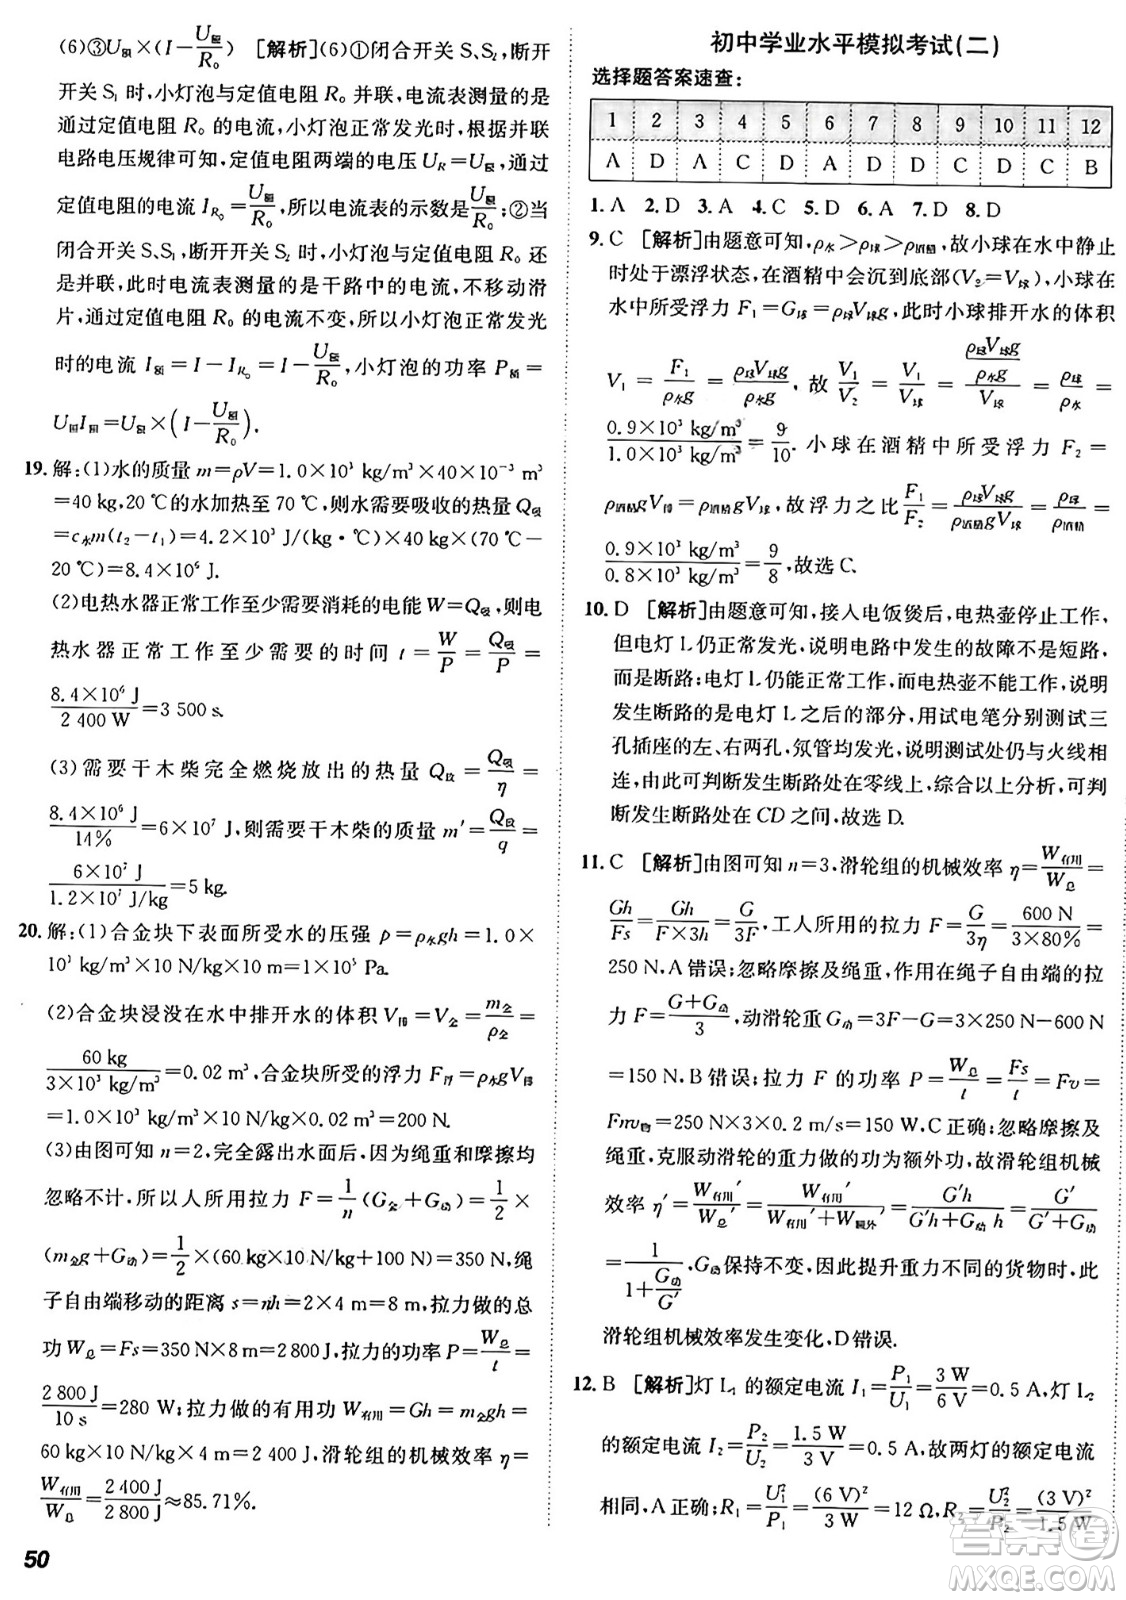 (6)③U额×(I−U额/R₀) [解析](6)①闭合开关 S、S₂,断开
开关 S₁ 时,小灯泡与定值电阻 R₀ 并联,电流表测量的是
通过定值电阻 R₀ 的电流,小灯泡正常发光时,根据并联
电路电压规律可知,定值电阻两端的电压 U_R=U额,通过
定值电阻的电流 I_R₀=U额/R₀,所以电流表的示数是U额/R₀;②当
闭合开关 S、S₁,断开开关 S₂ 时,小灯泡与定值电阻 R₀ 仍
并联,此时电流表测量的是干路中的电流,不移动滑
片,通过定值电阻 R₀ 的电流不变,所以小灯泡正常发光
时的电流 I额=I−I_R₀=I−U额/R₀,小灯泡的功率 P额=
U额I额=U额×(I−U额/R₀).
19. 解:(1)水的质量 m=ρV=1.0×10³ kg/m³×40×10⁻³ m³
=40 kg,20 ℃的水加热至 70 ℃,则水需要吸收的热量Q吸
=c水m(t₂−t₁)=4.2×10³ J/(kg·℃)×40 kg×(70 ℃−
20 ℃)=8.4×10⁶ J.
(2)电热水器正常工作至少需要消耗的电能 W=Q吸,则电
热水器正常工作至少需要的时间 t=W/P=Q吸/P=
8.4×10⁶ J/2 400 W=3 500 s.
(3)需要干木柴完全燃烧放出的热量 Q放=Q吸/η=
8.4×10⁶ J/14%=6×10⁷ J,则需要干木柴的质量 m′=Q放/q=
6×10⁷ J/1.2×10⁷ J/kg=5 kg.
20. 解:(1)合金块下表面所受水的压强 p=ρ水gh=1.0×
10³ kg/m³×10 N/kg×10 m=1×10⁵ Pa.
(2)合金块浸没在水中排开水的体积V排=V金=m金/ρ金=
60 kg/3×10³ kg/m³=0.02 m³,合金块所受的浮力 F浮=ρ水gV排
=1.0×10³ kg/m³×10 N/kg×0.02 m³=200 N.
(3)由图可知 n=2,完全露出水面后,因为绳重和摩擦均
忽略不计,所以人所用拉力 F=1/n(G金+G动)=1/2×
(m金g+G动)=1/2×(60 kg×10 N/kg+100 N)=350 N,绳
子自由端移动的距离 s=nh=2×4 m=8 m,拉力做的总
功 W总=Fs=350 N×8 m=2 800 J,拉力的功率 P=W总/t=
2 800 J/10 s=280 W;拉力做的有用功 W有用=Gh=m金gh=
60 kg×10 N/kg×4 m=2 400 J,滑轮组的机械效率 η=
W有用/W总=2 400 J/2 800 J≈85.71%.
50
初中学业水平模拟考试(二)
选择题答案速查:
1 2 3 4 5 6 7 8 9 10 11 12
A D A C D A D D C D C B
1. A 2. D 3. A 4. C 5. D 6. A 7. D 8. D
9. C [解析]由题意可知,ρ水>ρ球>ρ酒精,故小球在水中静止
时处于漂浮状态,在酒精中会沉到底部(V₂=V球),小球在
水中所受浮力 F₁=G球=ρ球V球g,此时小球排开水的体积
V₁=F₁/ρ水g=ρ球V球g/ρ水g,故V₁/V₂=V₁/V球=(ρ球V球g/ρ水g)/V球=ρ球/ρ水=
0.9×10³ kg/m³/1.0×10³ kg/m³=9/10.小球在酒精中所受浮力 F₂=
ρ酒精gV排=ρ酒精gV球,故浮力之比F₁/F₂=ρ球V球g/ρ酒精gV球=ρ球/ρ酒精=
0.9×10³ kg/m³/0.8×10³ kg/m³=9/8,故选 C.
10. D [解析]由题意可知,接入电饭煲后,电热壶停止工作,
但电灯 L 仍正常发光,说明电路中发生的故障不是短路,
而是断路;电灯 L 仍能正常工作,而电热壶不能工作,说明
发生断路的是电灯 L 之后的部分,用试电笔分别测试三
孔插座的左、右两孔,氖管均发光,说明测试处仍与火线相
连,由此可判断发生断路处在零线上,综合以上分析,可判
断发生断路处在 CD 之间,故选 D.
11. C [解析]由图可知 n=3,滑轮组的机械效率 η=W有用/W总=
Gh/Fs=Gh/F×3h=G/3F,工人所用的拉力 F=G/3η=600 N/3×80%=
250 N,A 错误;忽略摩擦及绳重,作用在绳子自由端的拉
力 F=G+G动/3,动滑轮重 G动=3F−G=3×250 N−600 N
=150 N,B 错误;拉力 F 的功率 P=W总/t=Fs/t=Fv=
Fnv物=250 N×3×0.2 m/s=150 W,C 正确;忽略摩擦及
绳重,克服动滑轮的重力做的功为额外功,故滑轮组机械
效率 η′=W有用′/W总′=W有用′/W有用′+W额外′=G′h/G′h+G动h=G′/G′+G动
=1/(1+G动/G′),G动保持不变,因此提升重力不同的货物时,
滑轮组机械效率发生变化,D 错误.
12. B [解析]灯 L₁ 的额定电流 I₁=P₁/U₁=3 W/6 V=0.5 A,灯 L₂
的额定电流 I₂=P₂/U₂=1.5 W/3 V=0.5 A,故两灯的额定电流
相同,A 正确;R₁=U₁²/P₁=(6 V)²/3 W=12 Ω,R₂=U₂²/P₂=(3 V)²/1.5 W